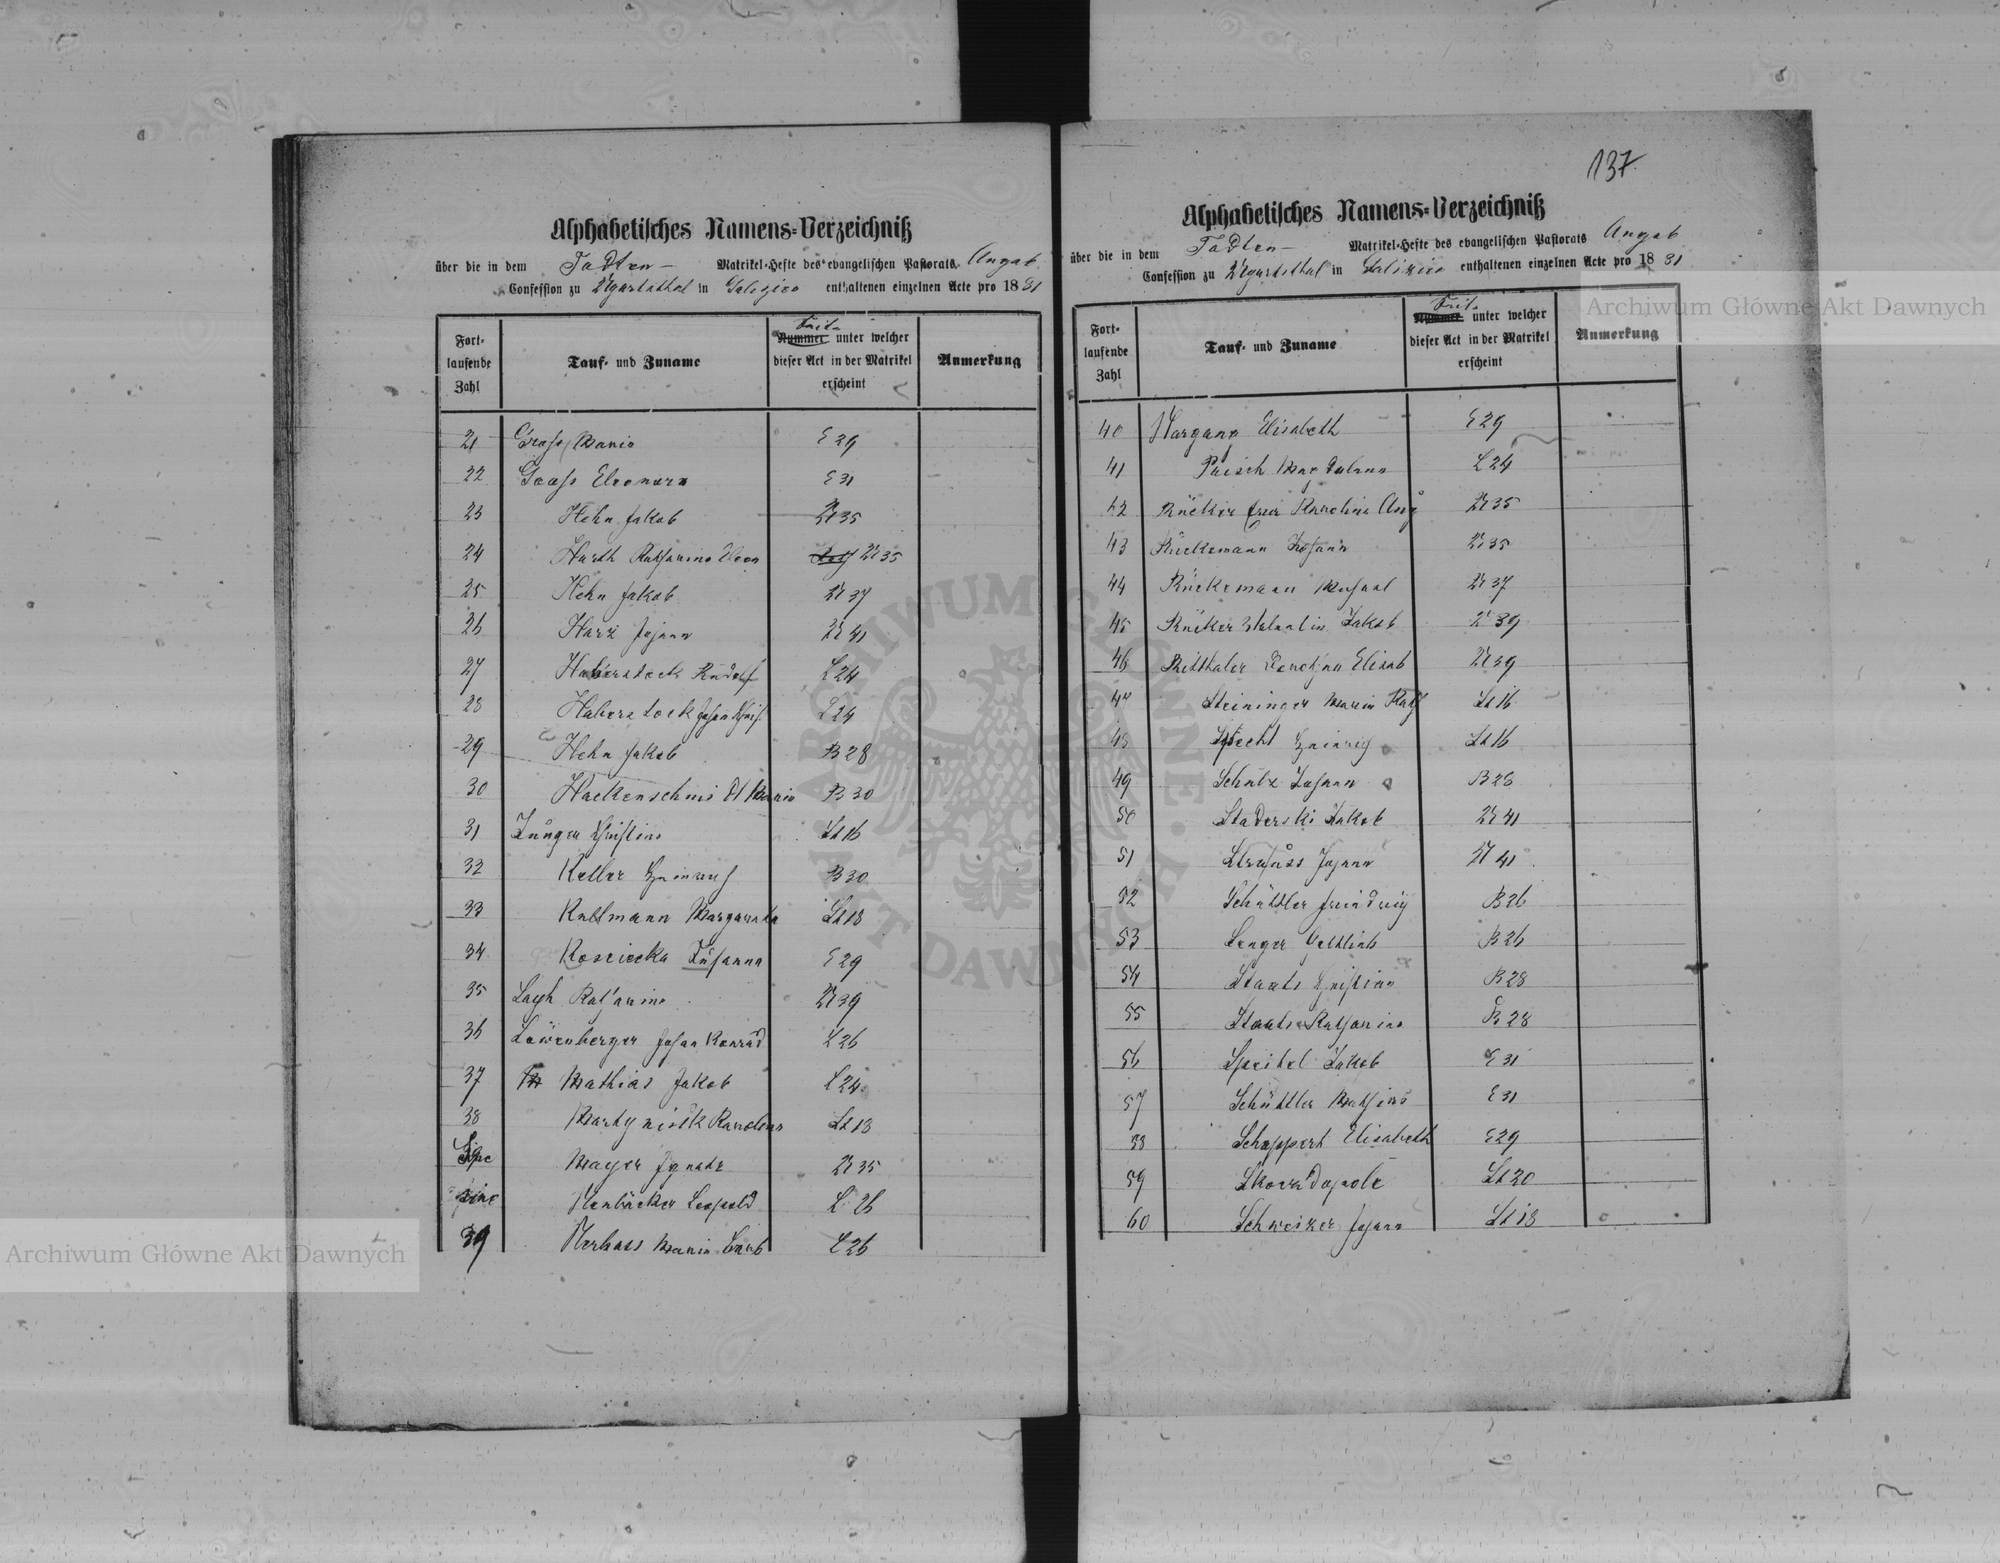 137
Alphabetisches Namens-Verzeichniß
über die in dem Todten- Matrikel-Hefte des evangelischen Pastorats Augsb
Confession zu Ugartsthal in Galizien enthaltenen einzelnen Acte pro 1881
Fort-laufende Zahl
Tauf- und Zuname
Nummer unter welcher dieser Act in der Matrikel erscheint
Anmerkung
21 Gross Maria E 29
22 Gaass Eleonora E 31
23 Hehn Jakob U 35
24 Harth Katharina U 35
25 Hehn Jakob U 37
26 Harz Johann U 41
27 Haberstock Rudolf L 24
28 Haberstock L 24
29 Hehn Jakob B 28
30 Hackenschmidt Maria B 30
31 Junger Christine Ld 16
32 Keller Heinrich B 30
33 Kallmann Margaretha Ld 18
34 Kosciecka Susanna E 29
35 Katharina U 39
36 Löwenberger Johan Konrad L 26
37 Mathias Jakob L 24
38 Ld 18
Mayer Ignatz U 35
Leopold L 26
39 Nerbass Maria Barb L 26
Alphabetisches Namens-Verzeichniß
über die in dem Todten- Matrikel-Hefte des evangelischen Pastorats Augsb
Confession zu Ugartsthal in Galizien enthaltenen einzelnen Acte pro 1881
Fort-laufende Zahl
Tauf- und Zuname
Nummer unter welcher dieser Act in der Matrikel erscheint
Anmerkung
40 Elisabeth E 29
41 Magdalena L 24
42 Karolina U 35
43 Rückemann Johann U 35
44 Rückemann U 37
45 Rücker Jakob U 39
46 Ritthaler Elisab U 39
47 Steininger Maria Kath Ld 16
48 Specht Heinrich Ld 16
49 Schulz Johann B 28
50 Staderski Jakob U 41
51 Strauss Johann U 41
52 Schüttler B 26
53 Senger Gottlieb B 26
54 Staats Christian B 28
55 Staats Katharina B 28
56 Speitel Jakob E 31
57 Schüttler Mathias E 31
58 Schappert Elisabeth E 29
59 Ld 20
60 Schweizer Johann Ld 18
Archiwum Główne Akt Dawnych
Archiwum Główne Akt Dawnych
ARCHIWUM GŁÓWNE AKT DAWNYCH